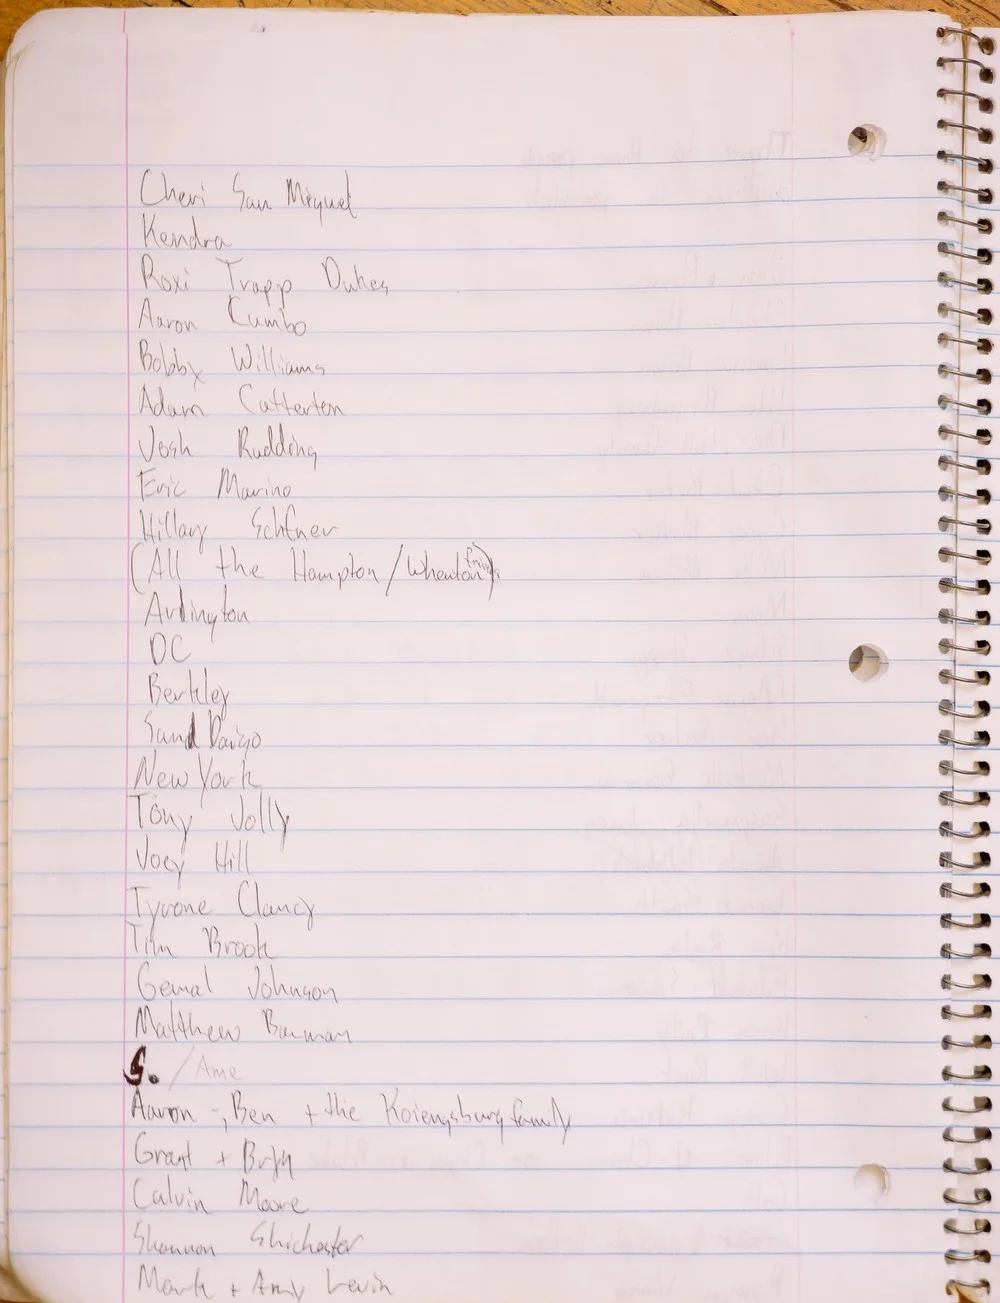 Cheri San Miguel
Kendra
Roxi Trapp Dukes
Aaron Cumbo
Bobby Williams
Adam Catterton
Josh Rudding
Eric Marino
Hillary Schfner
(All the Hampton/Wheaton friends)
Arlington
DC
Berkley
Sand Daigo
New York
Tony Jolly
Joey Hill
Tyrone Clancy
Tim Brook
Gemal Johnson
Matthew Bauman
S. / Ame
Aaron -, Ben + the Koiengsburg family
Grant +
Calvin Moore
Shannon Shichester
Mark + Amy Levin